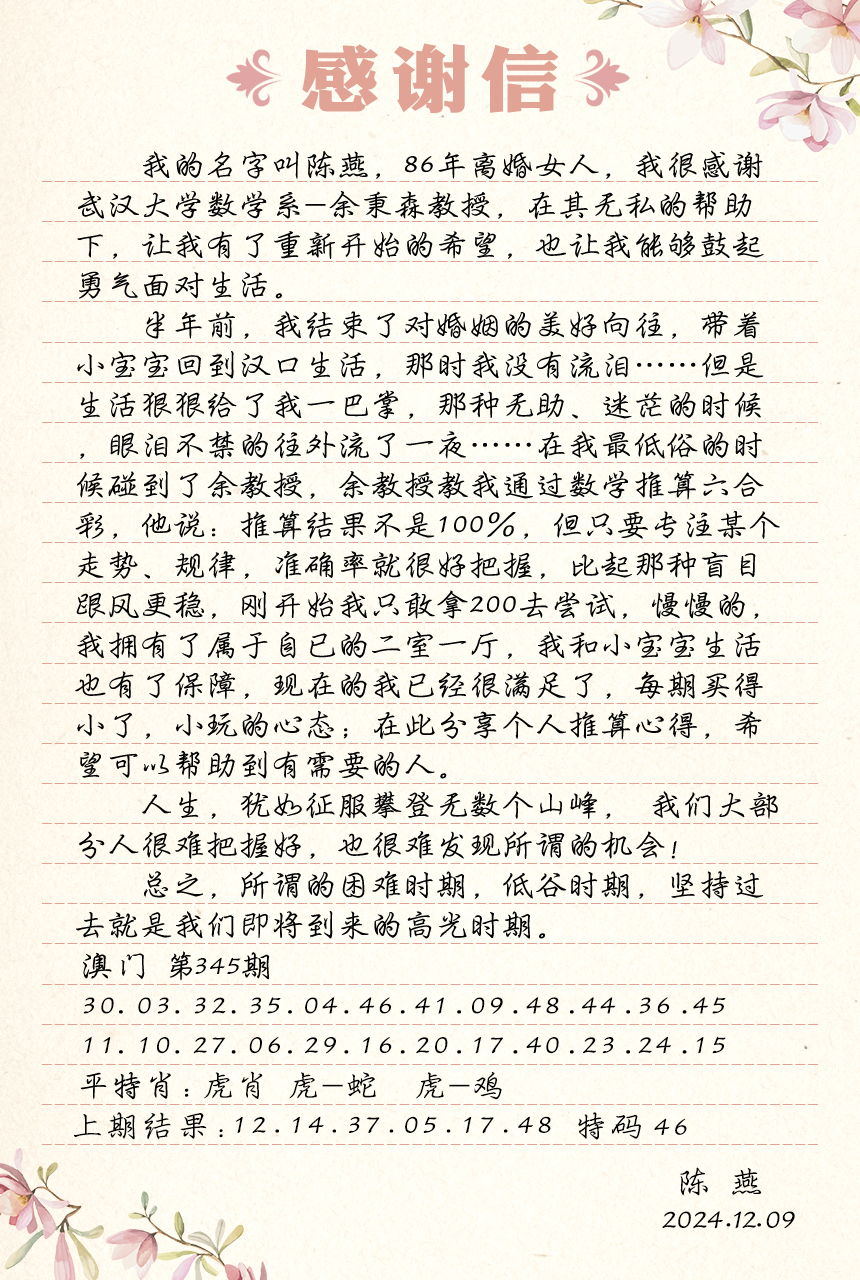 感谢信
我的名字叫陈燕，86年离婚女人，我很感谢
武汉大学数学系—余秉森教授，在其无私的帮助
下，让我有了重新开始的希望，也让我能够鼓起
勇气面对生活。
半年前，我结束了对婚姻的美好向往，带着
小宝宝回到汉口生活，那时我没有流泪……但是
生活狠狠给了我一巴掌，那种无助、迷茫的时候
，眼泪不禁的往外流了一夜……在我最低俗的时
候碰到了余教授，余教授教我通过数学推算六合
彩，他说：推算结果不是100%，但只要专注某个
走势、规律，准确率就很好把握，比起那种盲目
跟风更稳，刚开始我只敢拿200去尝试，慢慢的，
我拥有了属于自已的二室一厅，我和小宝宝生活
也有了保障，现在的我已经很满足了，每期买得
小了，小玩的心态；在此分享个人推算心得，希
望可以帮助到有需要的人。
人生，犹如征服攀登无数个山峰， 我们大部
分人很难把握好，也很难发现所谓的机会！
总之，所谓的困难时期，低谷时期，坚持过
去就是我们即将到来的高光时期。
澳门 第345期
30.03.32.35.04.46.41.09.48.44.36.45
11.10.27.06.29.16.20.17.40.23.24.15
平特肖：虎肖 虎—蛇 虎—鸡
上期结果：12.14.37.05.17.48 特码 46
陈 燕
2024.12.09